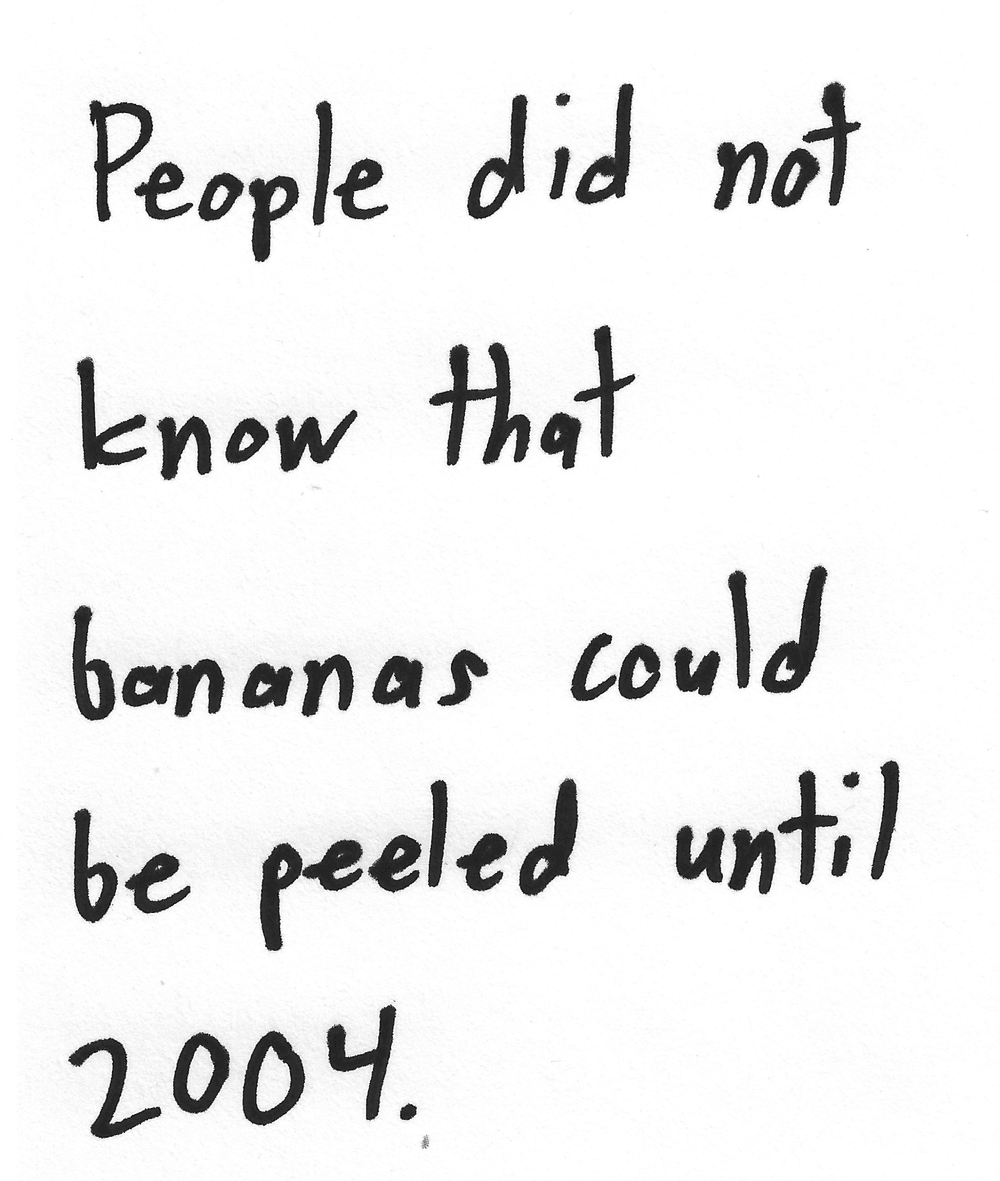 People did not
know that
bananas could
be peeled until
2004.